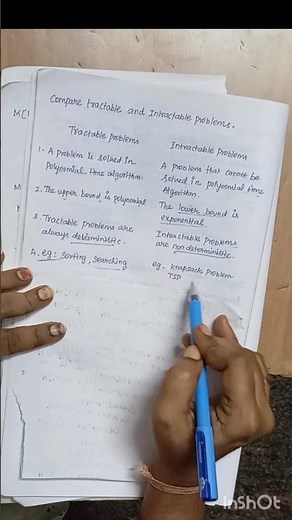 Compare tractable and Intractable problems.
Tractable problems
1- A problem is solved in
Polynomial-time algorithm.
2. The upper bound is polynomial
3. Tractable problems are
always deterministic.
4. eg: sorting, searching
Intractable problems
A problem that cannot be
solved in polynomial time
Algorithm.
The lower bound is
exponential.
Intractable problems
are non deterministic.
eg- knapsack problem
TSP
InShOt